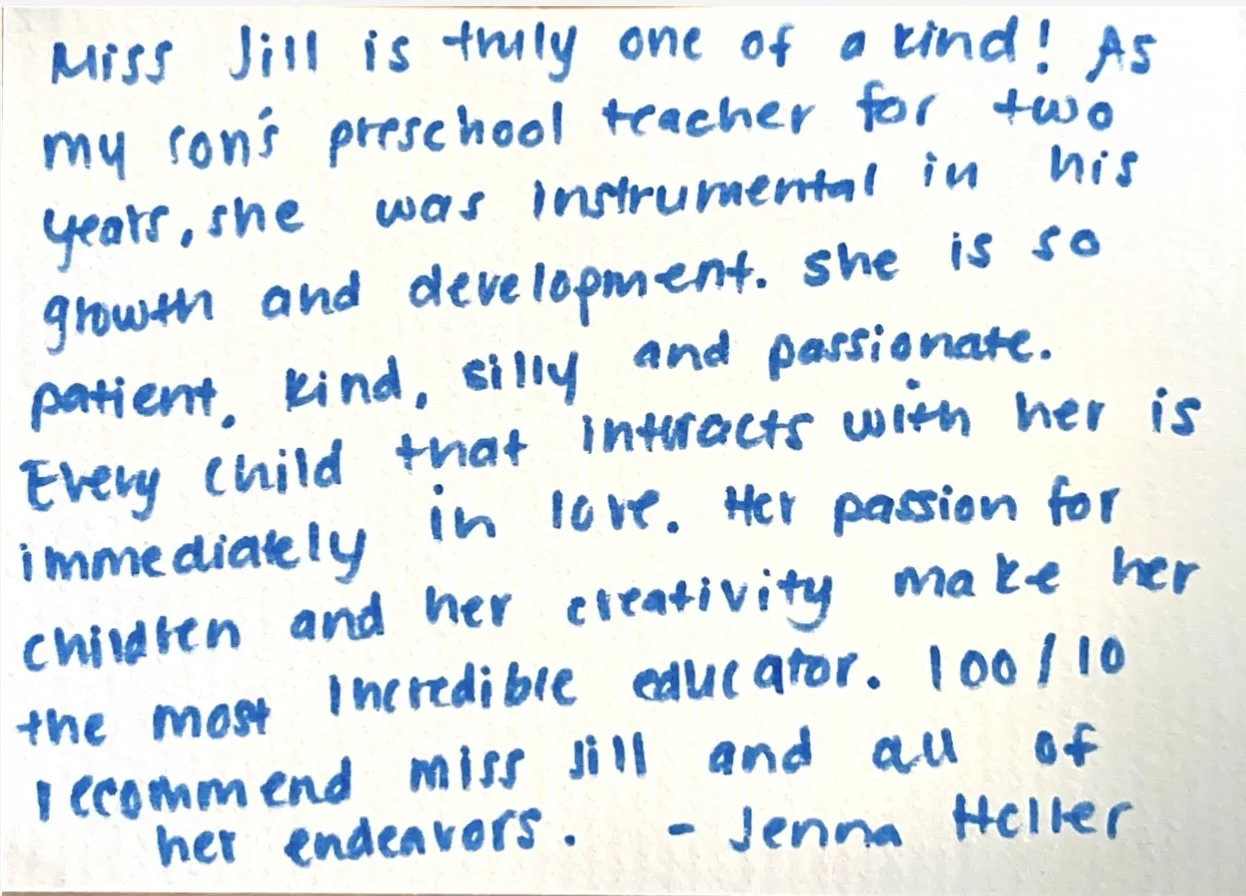 Miss Jill is truly one of a kind! As
my son's preschool teacher for two
years, she was instrumental in his
growth and development. she is so
patient, kind, silly and passionate.
Every child that interacts with her is
immediately in love. Her passion for
children and her creativity make her
the most incredible educator. 100/10
recommend miss Jill and all of
her endeavors. - Jenna Heller